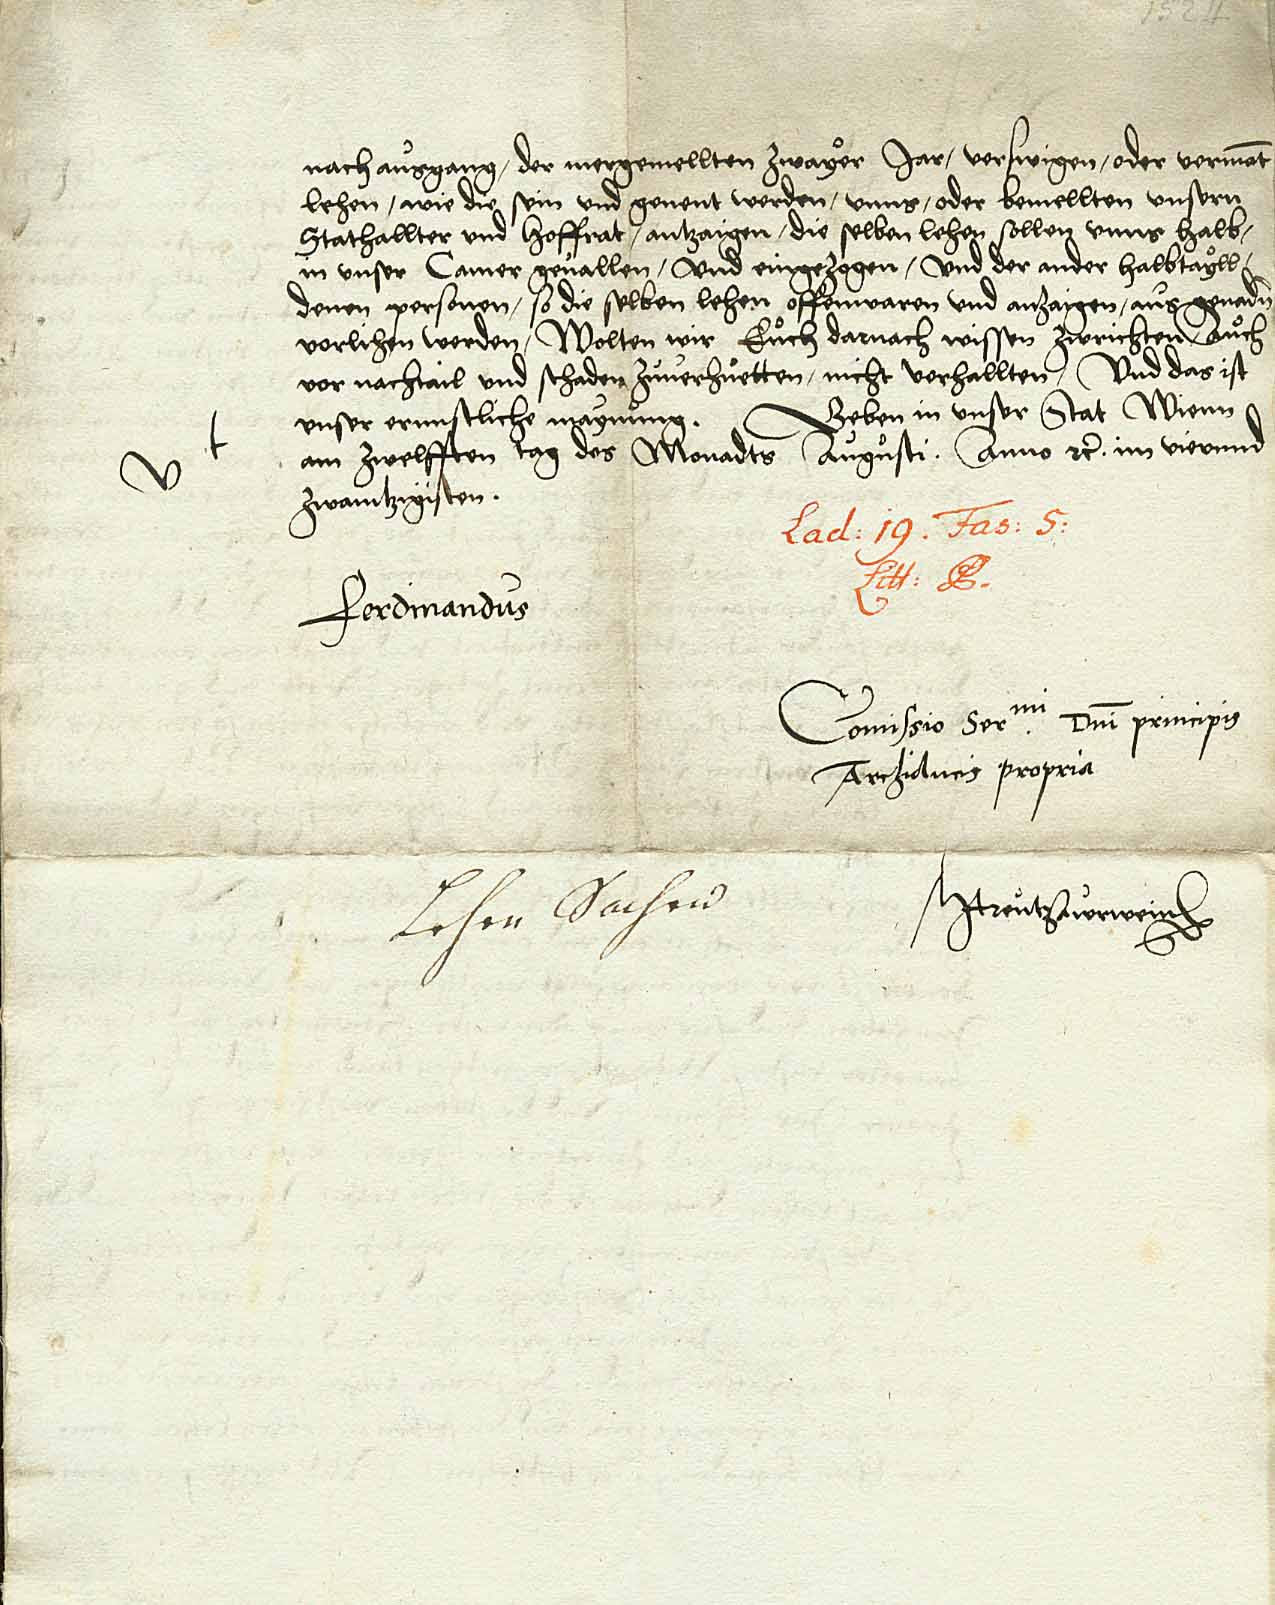 1524
nach ausgang / der mergemellten zwayer Jar / verswigen / oder vermont
lehen / wie die sein und genent werden / unns / oder bemellten unsern
Stathallter und Hoffrat / antzaigen / die selben lehen sollen unns halb /
in unser Camer gevallen / und eingezogen / und der ander halbtayll /
denen personen / so die selben lehen offenwaren und anzaigen / aus genadn
verlihen werden / Wolten wir Euch darnach wissen zwrichten / Auch
vor nachtail und schaden zuverhuetten / nicht verhallten / Und das ist
unser ernnstliche maynung. Geben in unser Stat Wienn
am zwelfften tag des Monadts Augusti. Anno rc. im vierund
zwantzigisten.
Lad: 19. Fas: 5:
Litt: 
Ferdinandus
Comissio Ser mi. Dni principis
Archiducis propria
Lehen Sachen
Treutzsaurwein